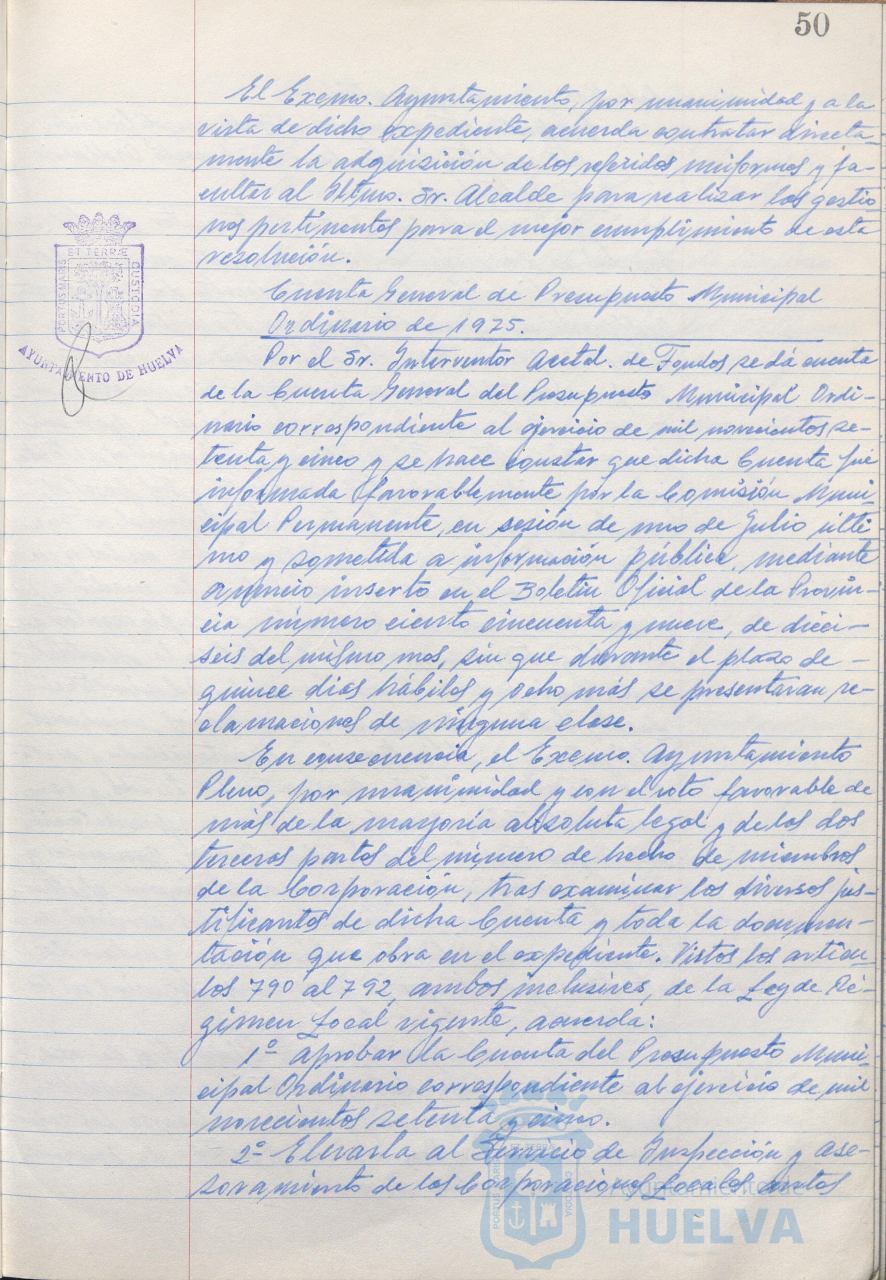 50
El Excmo. Ayuntamiento, por unanimidad y a la
vista de dicho expediente, acuerda contratar directa-
mente la adquisición de los referidos uniformes y fa-
cultar al Iltmo. Sr. Alcalde para realizar las gestio-
nes pertinentes para el mejor cumplimiento de esta
resolución.
ET TERRÆ
PORTUS MARIS
CUSTODIA
AYUNTAMIENTO DE HUELVA
Cuenta General de Presupuesto Municipal
Ordinario de 1975.
Por el Sr. Interventor Acctal. de Fondos se dá cuenta
de la Cuenta General del Presupuesto Municipal Ordi-
nario correspondiente al ejercicio de mil novecientos se-
tenta y cinco y se hace constar que dicha Cuenta fué
informada favorablemente por la Comisión Muni-
cipal Permanente, en sesión de uno de Julio últi-
mo y sometida a información pública, mediante
anuncio inserto en el Boletín Oficial de la Provin-
cia número ciento cincuenta y nueve, de dieci-
séis del mismo mes, sin que durante el plazo de -
quince días hábiles y ocho más se presentaran re-
clamaciones de ninguna clase.
En consecuencia, el Excmo. Ayuntamiento
Pleno, por unanimidad y con el voto favorable de
más de la mayoría absoluta legal y de las dos
terceras partes del número de hecho de miembros
de la Corporación, tras examinar los diversos jus-
tificantes de dicha Cuenta y toda la documen-
tación que obra en el expediente. Vistos los artícu-
los 790 al 792, ambos inclusives, de la Ley de Ré-
gimen Local vigente, acuerda:
1º Aprobar la Cuenta del Presupuesto Muni-
cipal Ordinario correspondiente al ejercicio de mil
novecientos setenta y cinco.
2º Elevarla al Servicio de Inspección y Ase-
soramiento de las Corporaciones Locales antes
ET TERRÆ
PORTUS MARIS
CUSTODIA
Ayuntamiento de
HUELVA